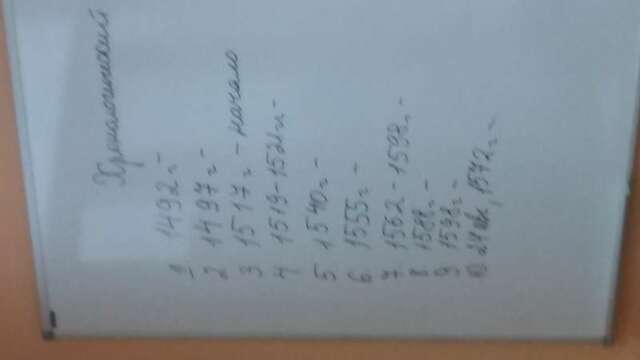 Хронологический
1 1492г. -
2 1497г. -
3 1517г. - начало
4 1519-1521гг. -
5 1540г. -
6 1555г. -
7 1562 - 1598г. -
8 1588г. -
9 1598г. -
10 24 авг, 1572г. -